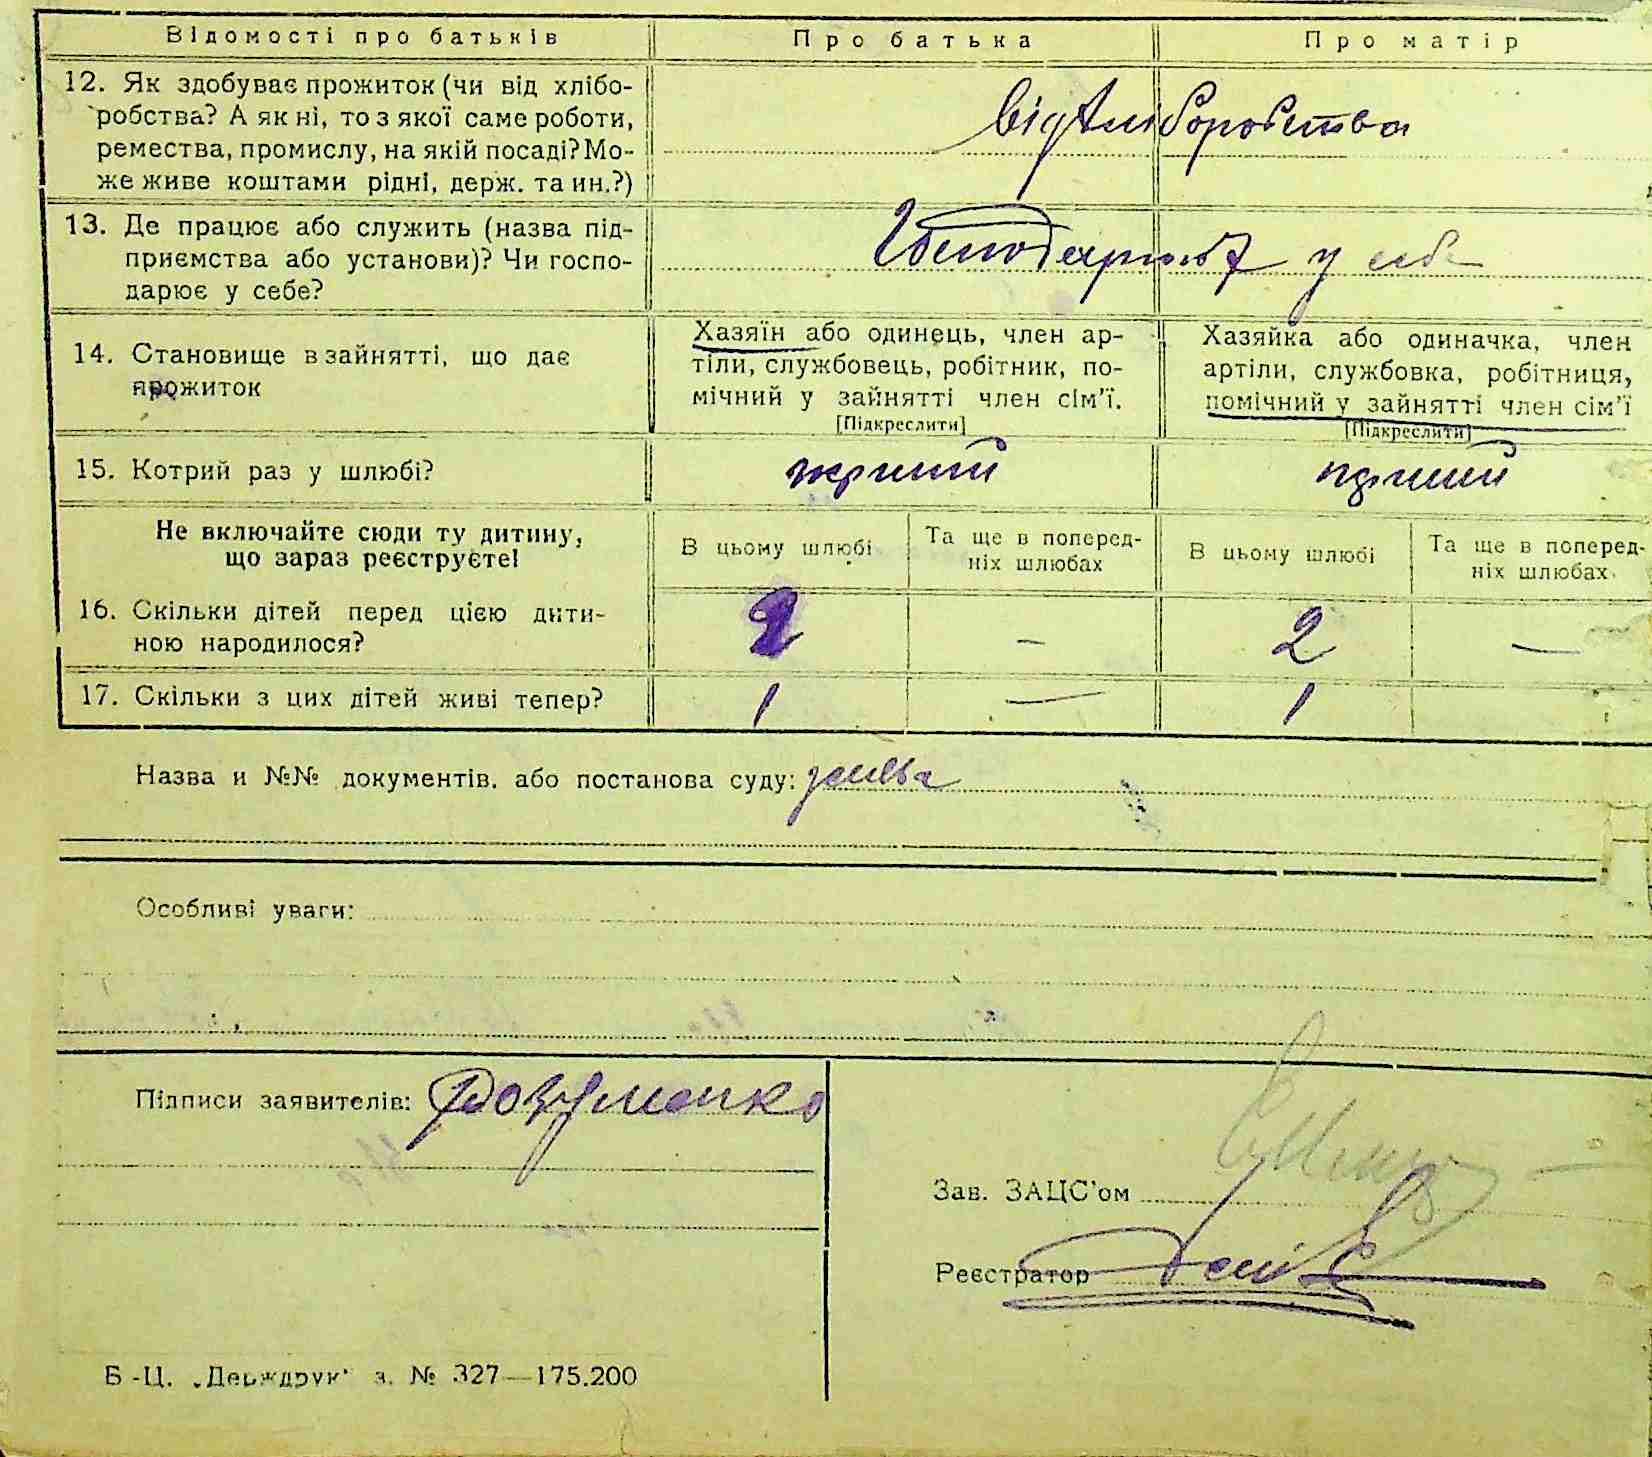 Відомості про батьків
Про батька
Про матір
12. Як здобуває прожиток (чи від хлібо-
робства? А як ні, то з якої саме роботи,
ремества, промислу, на якій посаді? Мо-
же живе коштами рідні, держ. та ин.?)
від хліборобства
13. Де працює або служить (назва під-
приємства або установи)? Чи госпо-
дарює у себе?
Господарює у себе
14. Становище в зайнятті, що дає
прожиток
Хазяїн або одинець, член ар-
тіли, службовець, робітник, по-
мічний у зайнятті член сім’ї.
[Підкреслити]
Хазяйка або одиначка, член
артіли, службовка, робітниця,
помічний у зайнятті член сім’ї
[Підкреслити]
15. Котрий раз у шлюбі?
перший
перший
Не включайте сюди ту дитину,
що зараз реєструєте!
В цьому шлюбі
Та ще в поперед-
ніх шлюбах
В цьому шлюбі
Та ще в поперед-
ніх шлюбах.
16. Скільки дітей перед цією дити-
ною народилося?
2 — 2 —
17. Скільки з цих дітей живі тепер?
1 — 1
Назва и №№ документів. або постанова суду:
Особливі уваги:
Підписи заявителів: Розуменко
Зав. ЗАЦС’ом
Реєстратор
Б-Ц. „Держдрук“ з. № 327—175.200